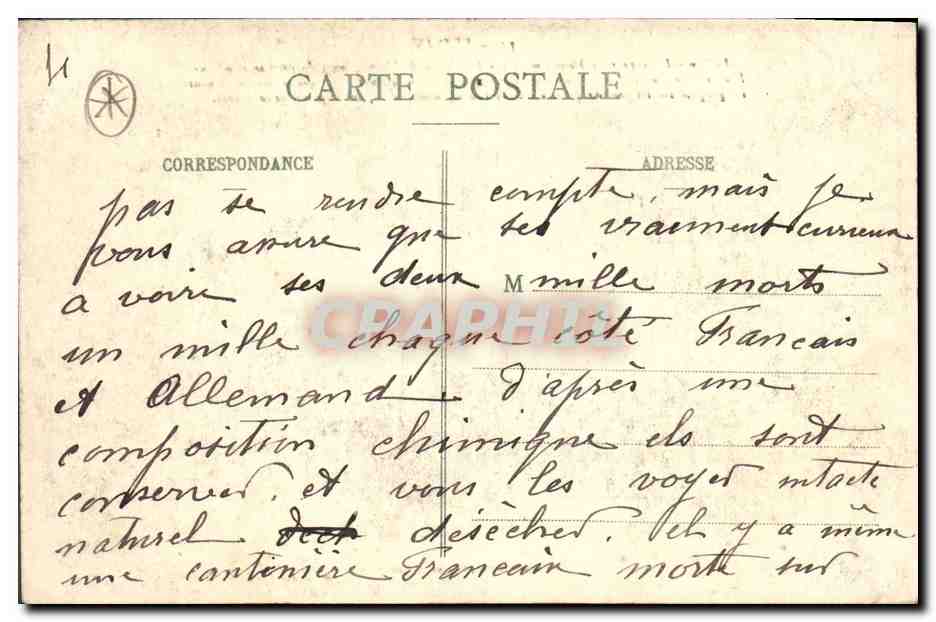 CARTE POSTALE
CORRESPONDANCE
ADRESSE
pas se rendre compte, mais je
vous assure que ses vraiment curieux
a voire ses deux M mille morts
un mille chaque côté Francais
et Allemand. d'après une
composition chimique els sont
conserved. et vous les voyed intacte
naturel desèched. el y a même
une cantinière Francaix morte sur
CPAPHIL